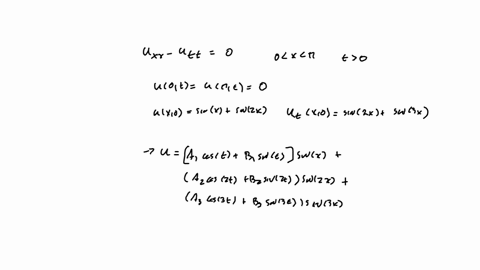 u_xx - u_tt = 0    0 < x < π    t > 0
u(0,t) = u(π,t) = 0
u(x,0) = sin(x) + sin(2x)    u_t(x,0) = sin(2x) + sin(3x)
→ u = [A_1 cos(t) + B_1 sin(t)] sin(x) +
(A_2 cos(2t) + B_2 sin(2t)) sin(2x) +
(A_3 cos(3t) + B_3 sin(3t)) sin(3x)